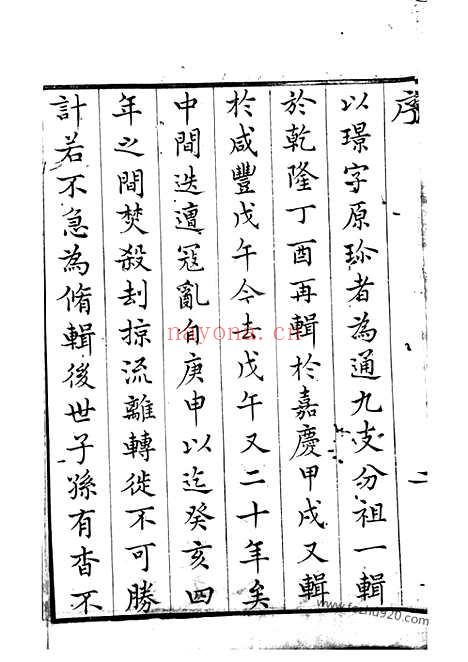 序
二
以璟字原珎者為通九支分祖一輯
於乾隆丁酉再輯於嘉慶甲戌又輯
於咸豐戊午今去戊午又二十年矣
中間迭遭寇亂自庚申以迄癸亥四
年之間焚殺刦掠流離轉徙不可勝
計若不急為脩輯後世子孫有杳不
nayona.cn